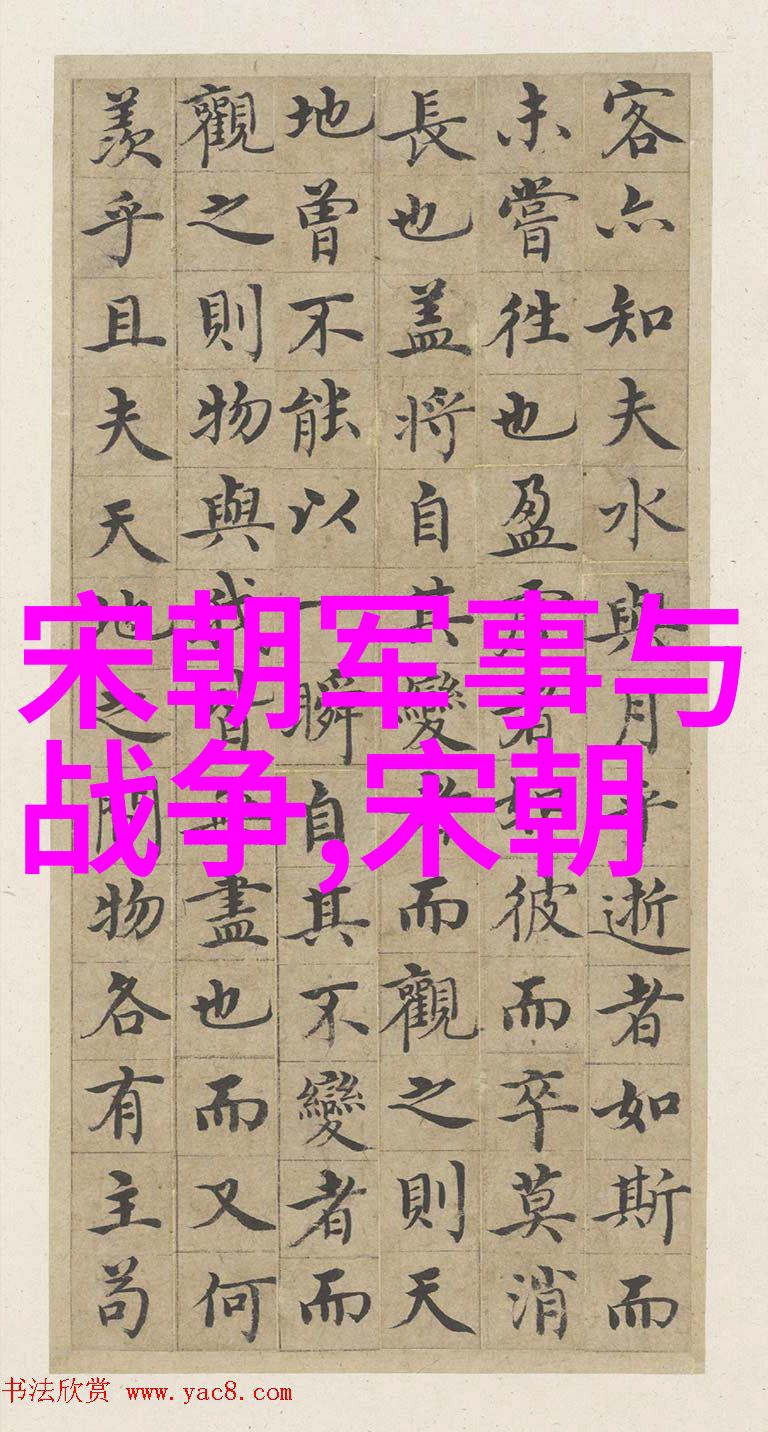 客亦知夫水與月乎逝者如斯而
未嘗往也盈虛者如彼而卒莫消
長也盖將自其變者而觀之則天
地曾不能以一瞬自其不變者而
觀之則物與我皆無盡也而又何
羨乎且夫天地之間物各有主苟
宋朝军事与
战争,宋朝
书法欣赏 www.yac8.com